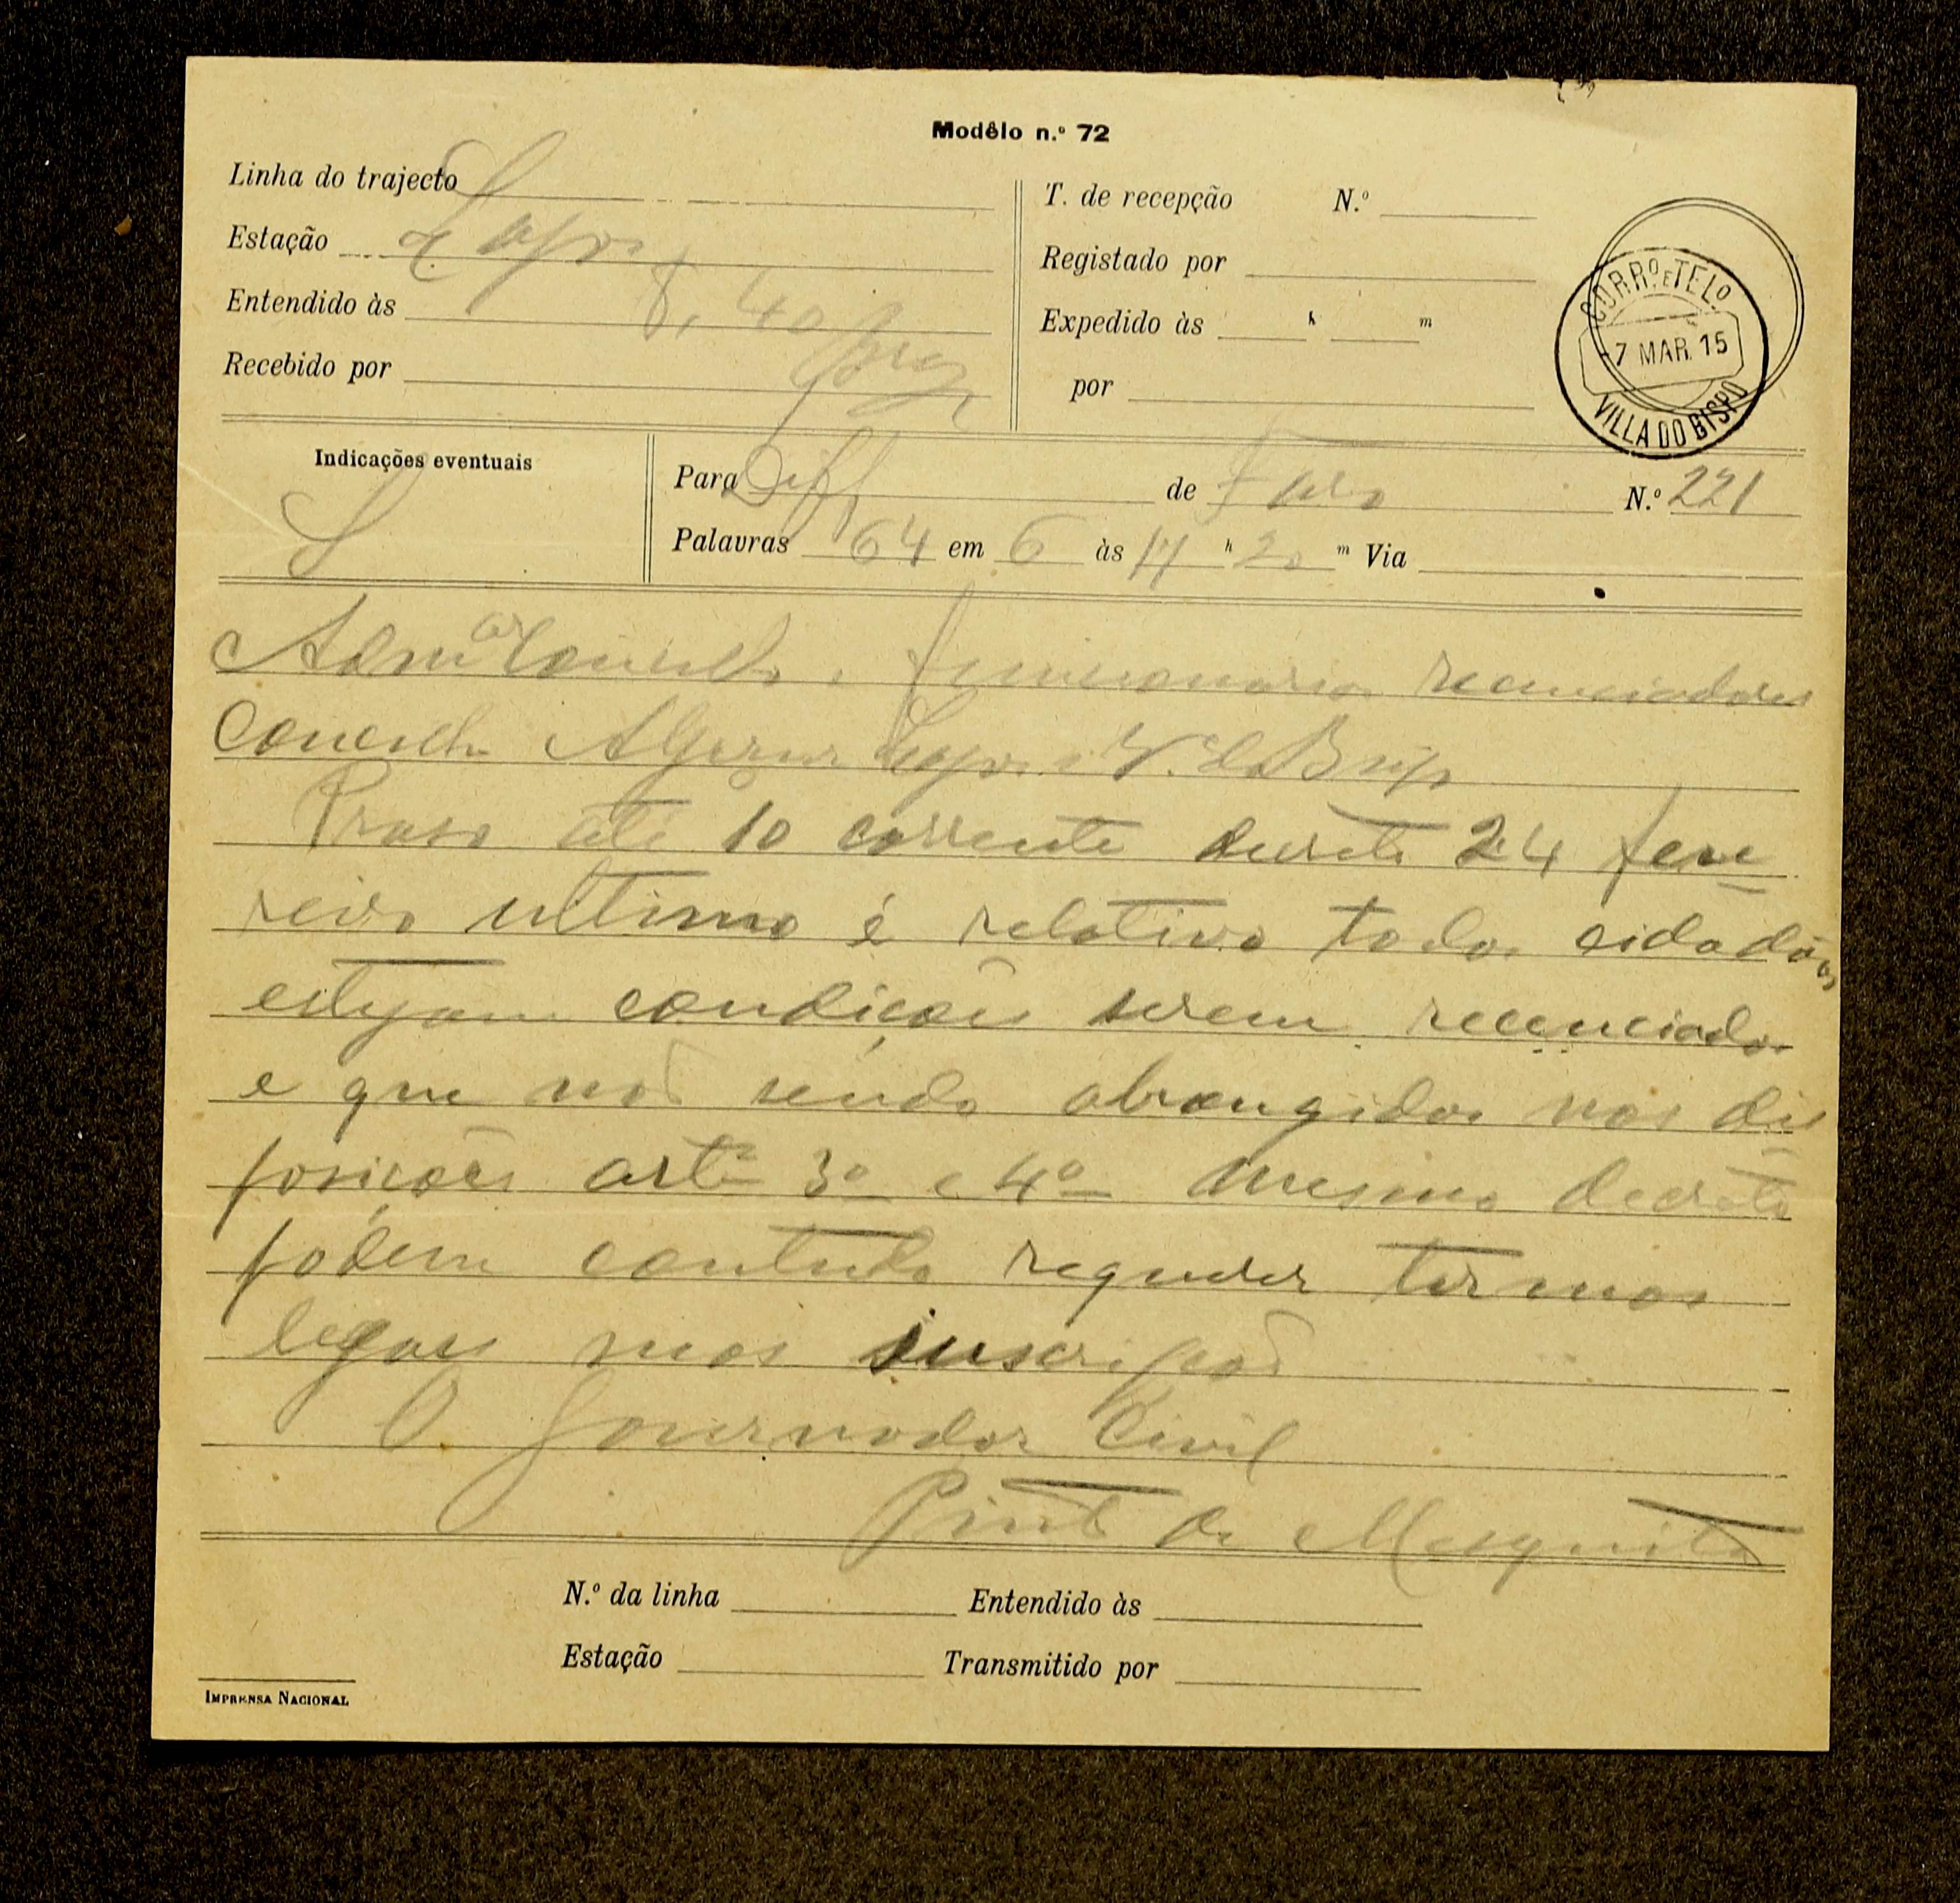 Modêlo n.º 72
Linha do trajecto
Estação Lagos
Entendido às 8,40
Recebido por
T. de recepção N.º
Registado por
Expedido às h m
por
CORRº E TELº
7 MAR. 15
VILLA DO BISPO
Indicações eventuais
S
Para Diff de Faro N.º 221
Palavras 64 em 6 às 17 h 20 m Via
Admºr Concelho, funcionarios recenciadores
Concelho Aljezur Lagos e V. do Bispo
Praso até 10 corrente decreto 24 feve
reiro ultimo é relativo todos cidadãos
estejam condições serem recenciados
e que não sendo abrangidos nas dis
posições artº 3º e 4º mesmo decreto
podem contudo requerer termos
legaes suas inscripção
O Governador Civil
Pinto de Mesquita
N.º da linha Entendido às
Estação Transmitido por
IMPRENSA NACIONAL